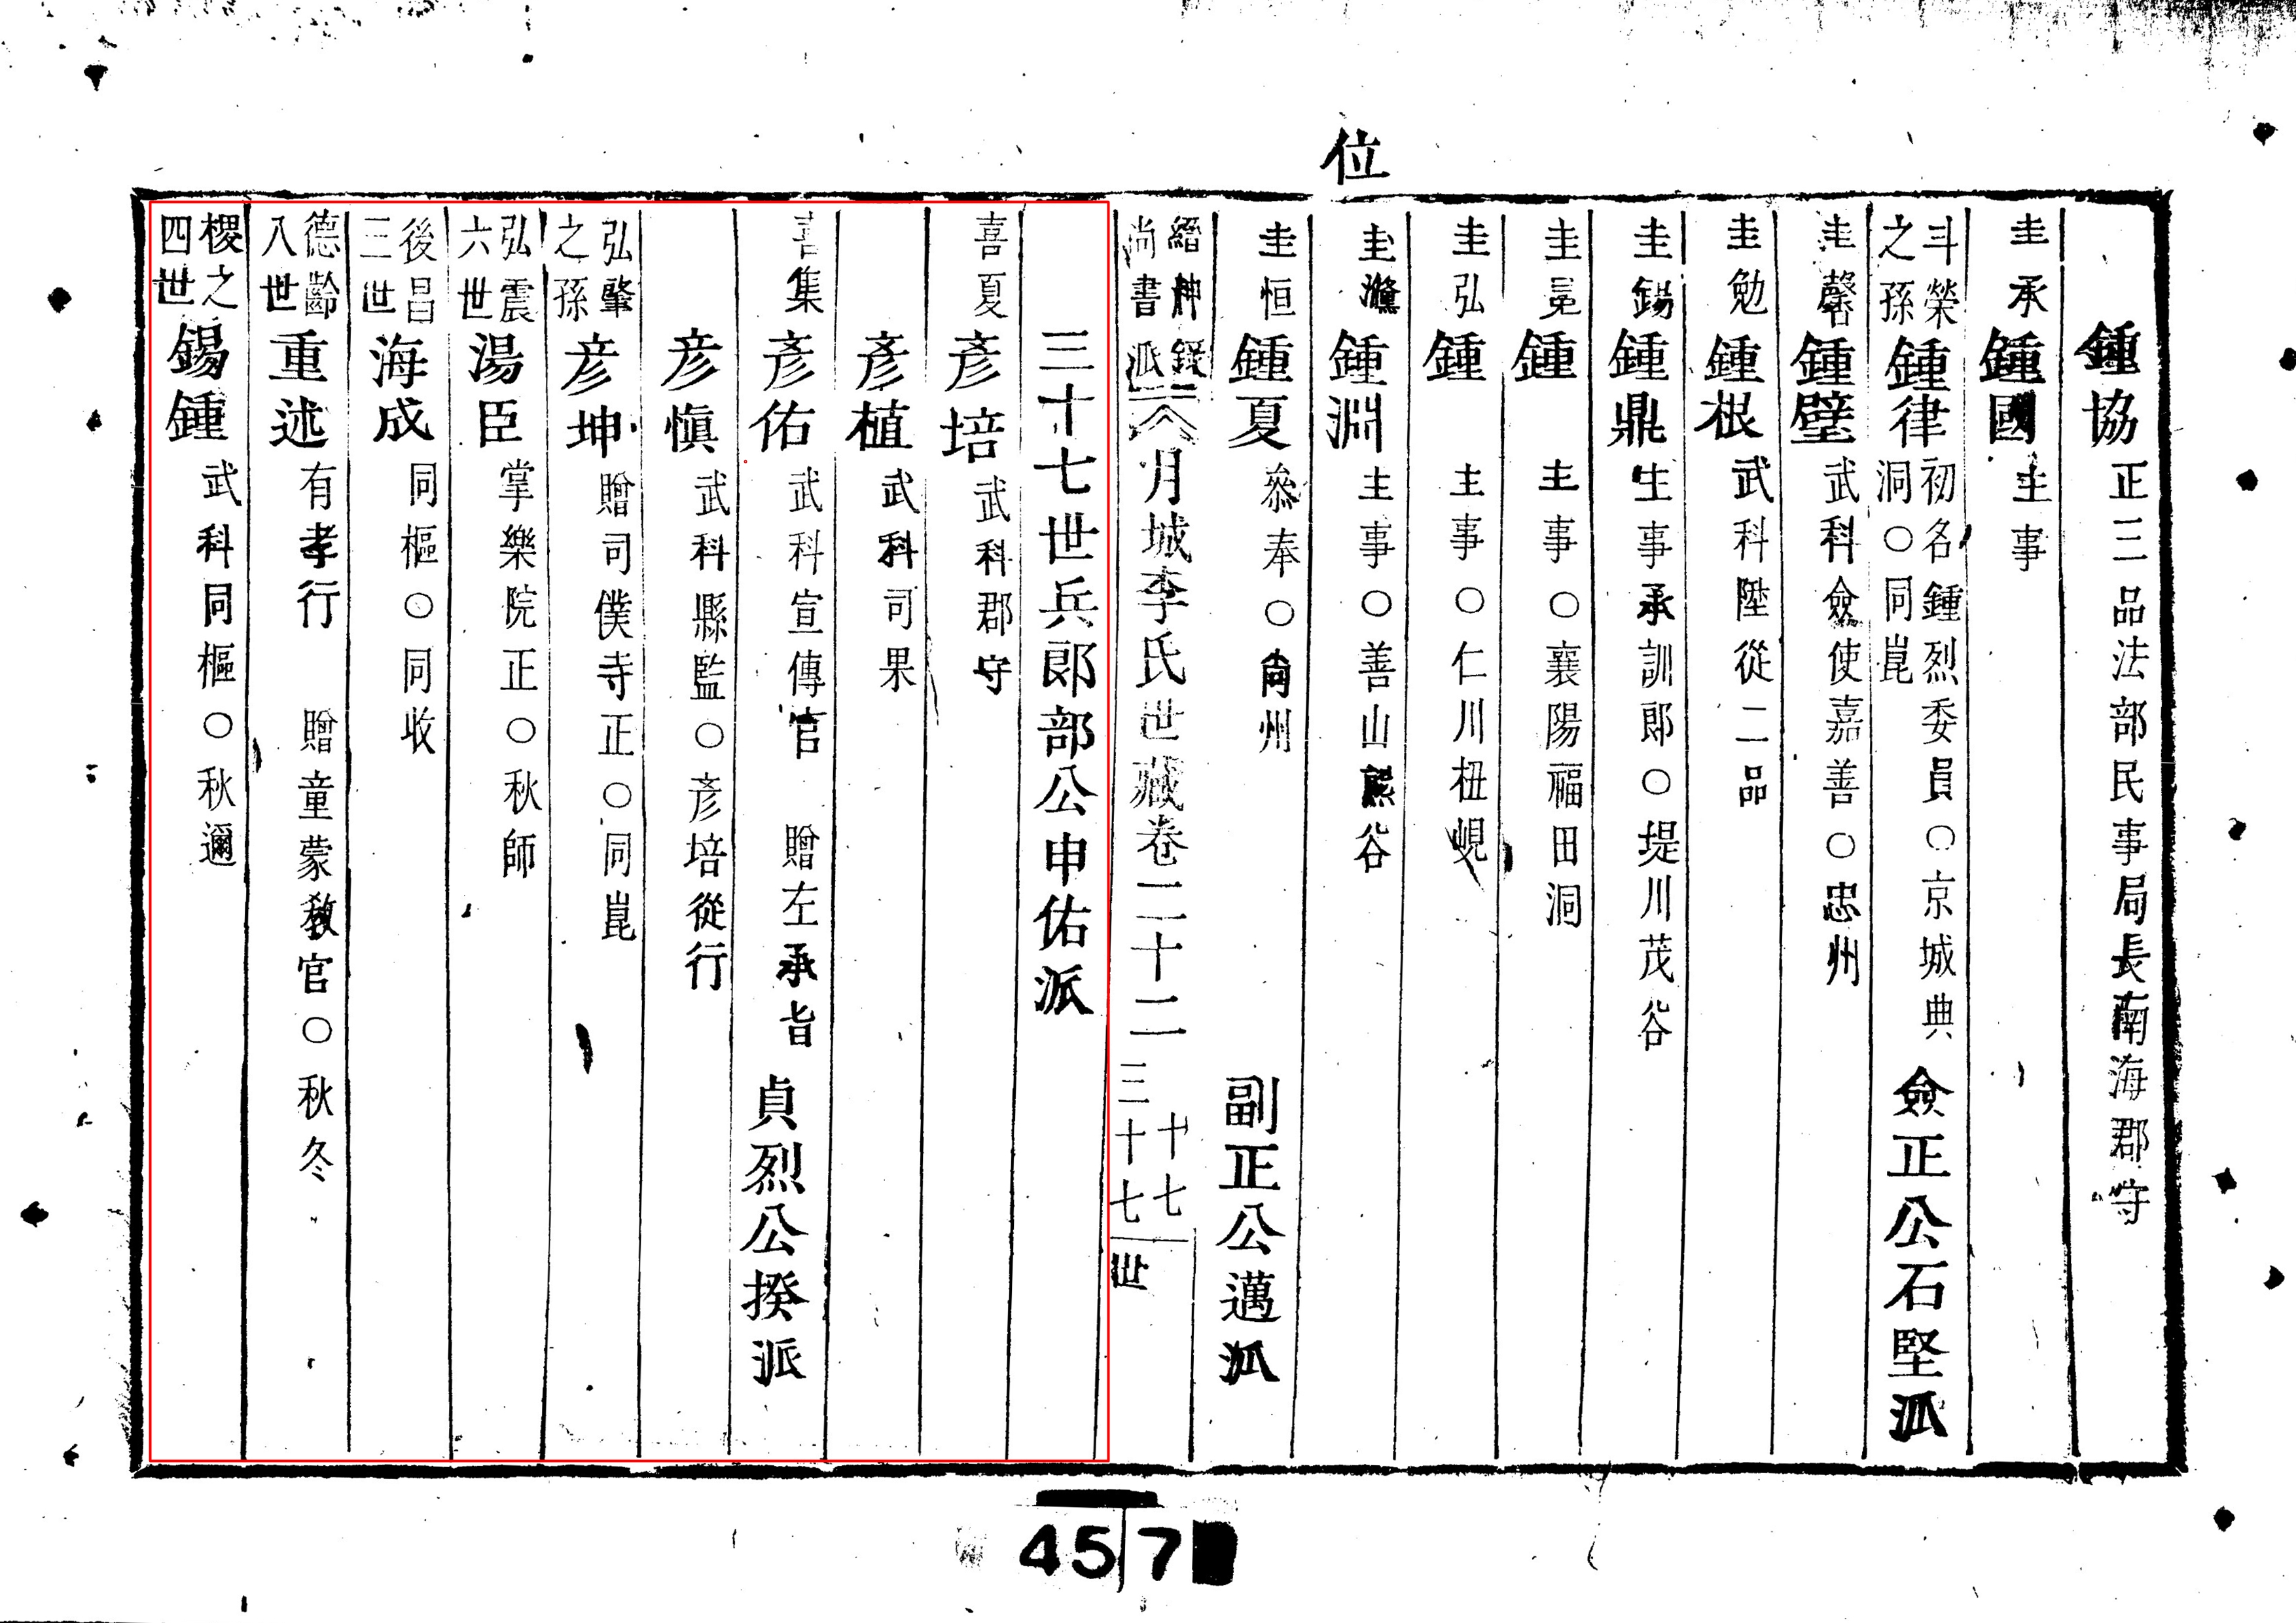 位
鍾協 正三品法部民事局長南海郡守
圭承 鍾國 主事
斗榮之孫 鍾律 初名鍾烈委員○京城典洞○同崑 僉正公石堅派
圭馨 鍾璧 武科僉使嘉善○忠州
圭勉 鍾根 武科陞從二品
圭錫 鍾鼎 主事承訓郎○堤川茂谷
圭冕 鍾 主事○襄陽福田洞
圭弘 鍾 主事○仁川杻峴
圭瀷 鍾淵 主事○善山熊谷
圭恒 鍾夏 叅奉○尙州 副正公邁派
縉紳錄二 尚書派 月城李氏世藏卷二十二 十七 三十七世
三十七世兵郎部公申佑派
喜夏 彦培 武科郡守
彦植 武科司果
喜集 彦佑 武科宣傳官 贈左承旨 貞烈公揆派
彦愼 武科縣監○彦培從行
弘肇之孫 彦坤 贈司僕寺正○同崑
弘震六世 湯臣 掌樂院正○秋師
後昌三世 海成 同樞○同收
德齡八世 重述 有孝行 贈童蒙敎官○秋冬
稷之四世 錫鍾 武科同樞○秋邇
457